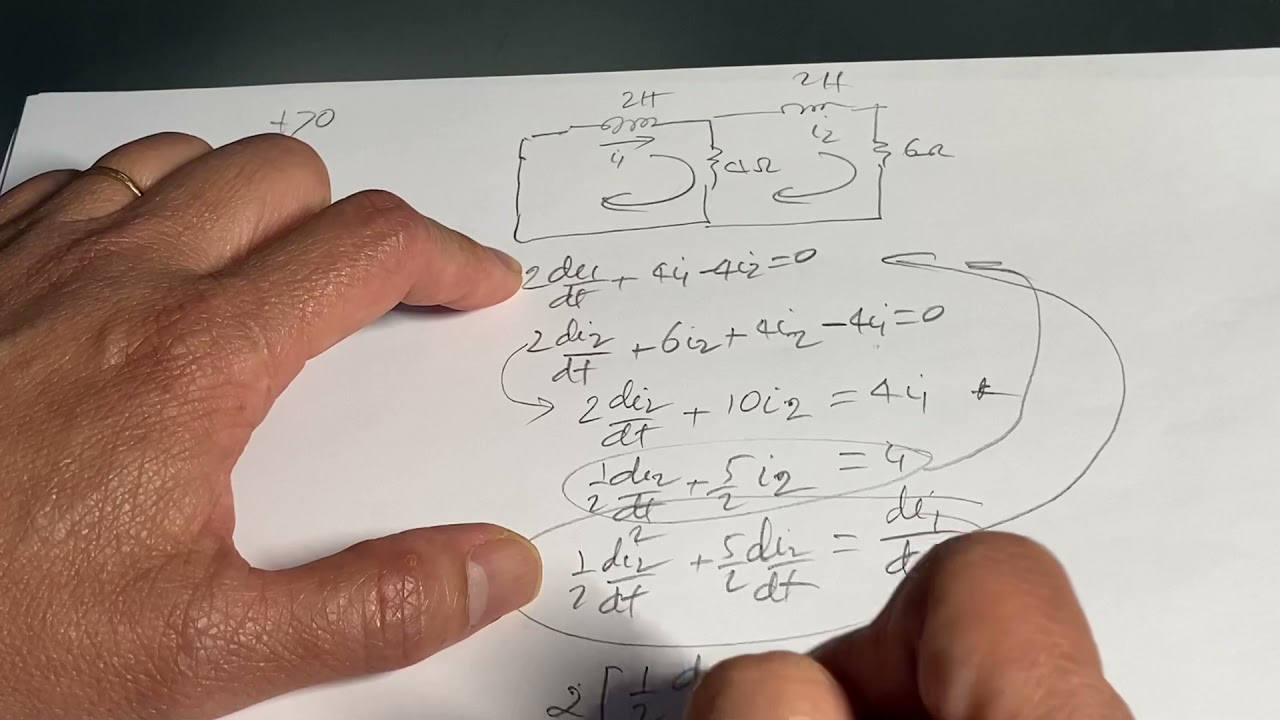 t>0
2H
2H
i1
4Ω
i2
6Ω
2 di1/dt + 4i1 - 4i2 = 0
2 di2/dt + 6i2 + 4i2 - 4i1 = 0
2 di2/dt + 10i2 = 4i1 *
1/2 di2/dt + 5/2 i2 = i1
1/2 d²i2/dt + 5/2 di2/dt = di1/
2 [ 1/2 d